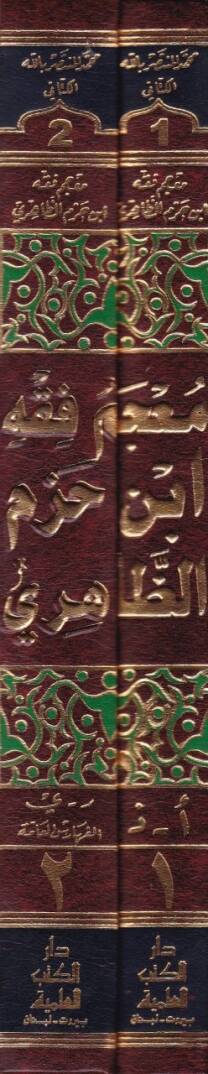 محمد المنتصر بالله
الكتاني
1
معجم فقه
ابن حزم الظاهري
محمد المنتصر بالله
الكتاني
2
معجم فقه
ابن حزم الظاهري
مُعْجَمُ فِقْهِ
ابْن حَزْم
الظَّاهِرِيّ
أ - ز
١
ر - ي
الفهارس العامة
٢
دار
الكتب
العلمية
بيروت - لبنان
دار
الكتب
العلمية
بيروت - لبنان